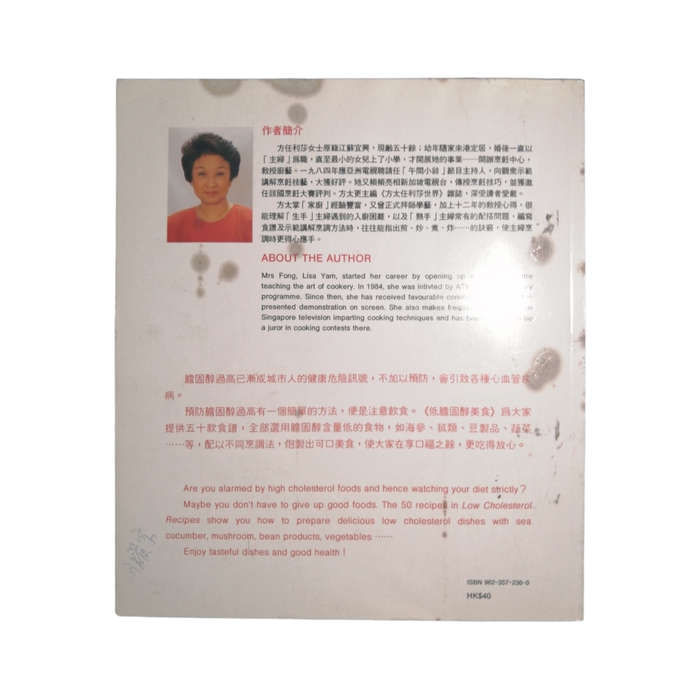 作者簡介
方任利莎女士原籍江蘇宜興，現齡五十餘；幼年隨家來港定居，婚後一直以
「主婦」爲職，直至最小的女兒上了小學，才開展她的事業——開辦烹飪中心，
教授廚藝。一九八四年應亞洲電視聘請任「午間小敍」節目主持人，向觀衆示範
講解烹飪技藝，大獲好評。她又頻頻亮相新加坡電視台，傳授烹飪技巧，並獲邀
任該國烹飪大賽評判。方太更主編《方太任利莎世界》雜誌，深受讀者愛戴。
方太掌「家廚」經驗豐富，又曾正式拜師學藝，加上十二年的教授心得，很
能理解「生手」主婦遇到的入廚困難，以及「熟手」主婦常有的配搭問題，編寫
食譜及示範講解烹調方法時，往往能指出煎、炒、煮、炸……的訣竅，使主婦烹
調時更得心應手。
ABOUT THE AUTHOR
Mrs Fong, Lisa Yam, started her career by opening up
teaching the art of cookery. In 1984, she was intivted by
programme. Since then, she has received favourable
presented demonstration on screen. She also makes
Singapore television imparting cooking techniques and has
a juror in cooking contests there.
膽固醇過高已漸成城市人的健康危險訊號，不加以預防，會引致各種心血管疾
病。
預防膽固醇過高有一個簡單的方法，便是注意飲食。《低膽固醇美食》爲大家
提供五十款食譜，全部選用膽固醇含量低的食物，如海參、菰類、豆製品、蔬菜
……等，配以不同烹調法，炮製出可口美食，使大家在享口福之餘，更吃得放心。
Are you alarmed by high cholesterol foods and hence watching your diet strictly?
Maybe you don't have to give up good foods. The 50 recipes in Low Cholesterol
Recipes show you how to prepare delicious low cholesterol dishes with sea
cucumber, mushroom, bean products, vegetables ……
Enjoy tasteful dishes and good health !
ISBN 962-357-236-0
HK$40